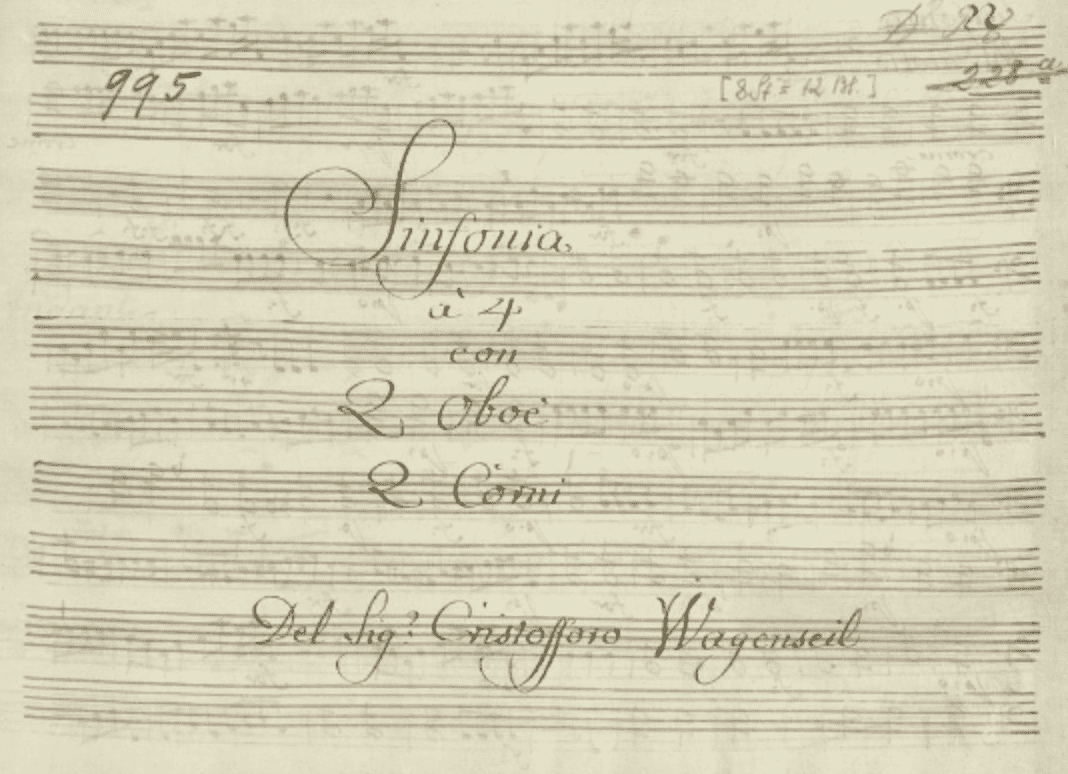 995
[8 St = 12 Bl.]
228 a
Sinfonia
à 4
con
2 Oboè
2 Corni
Del Sig.r Cristofforo Wagenseil